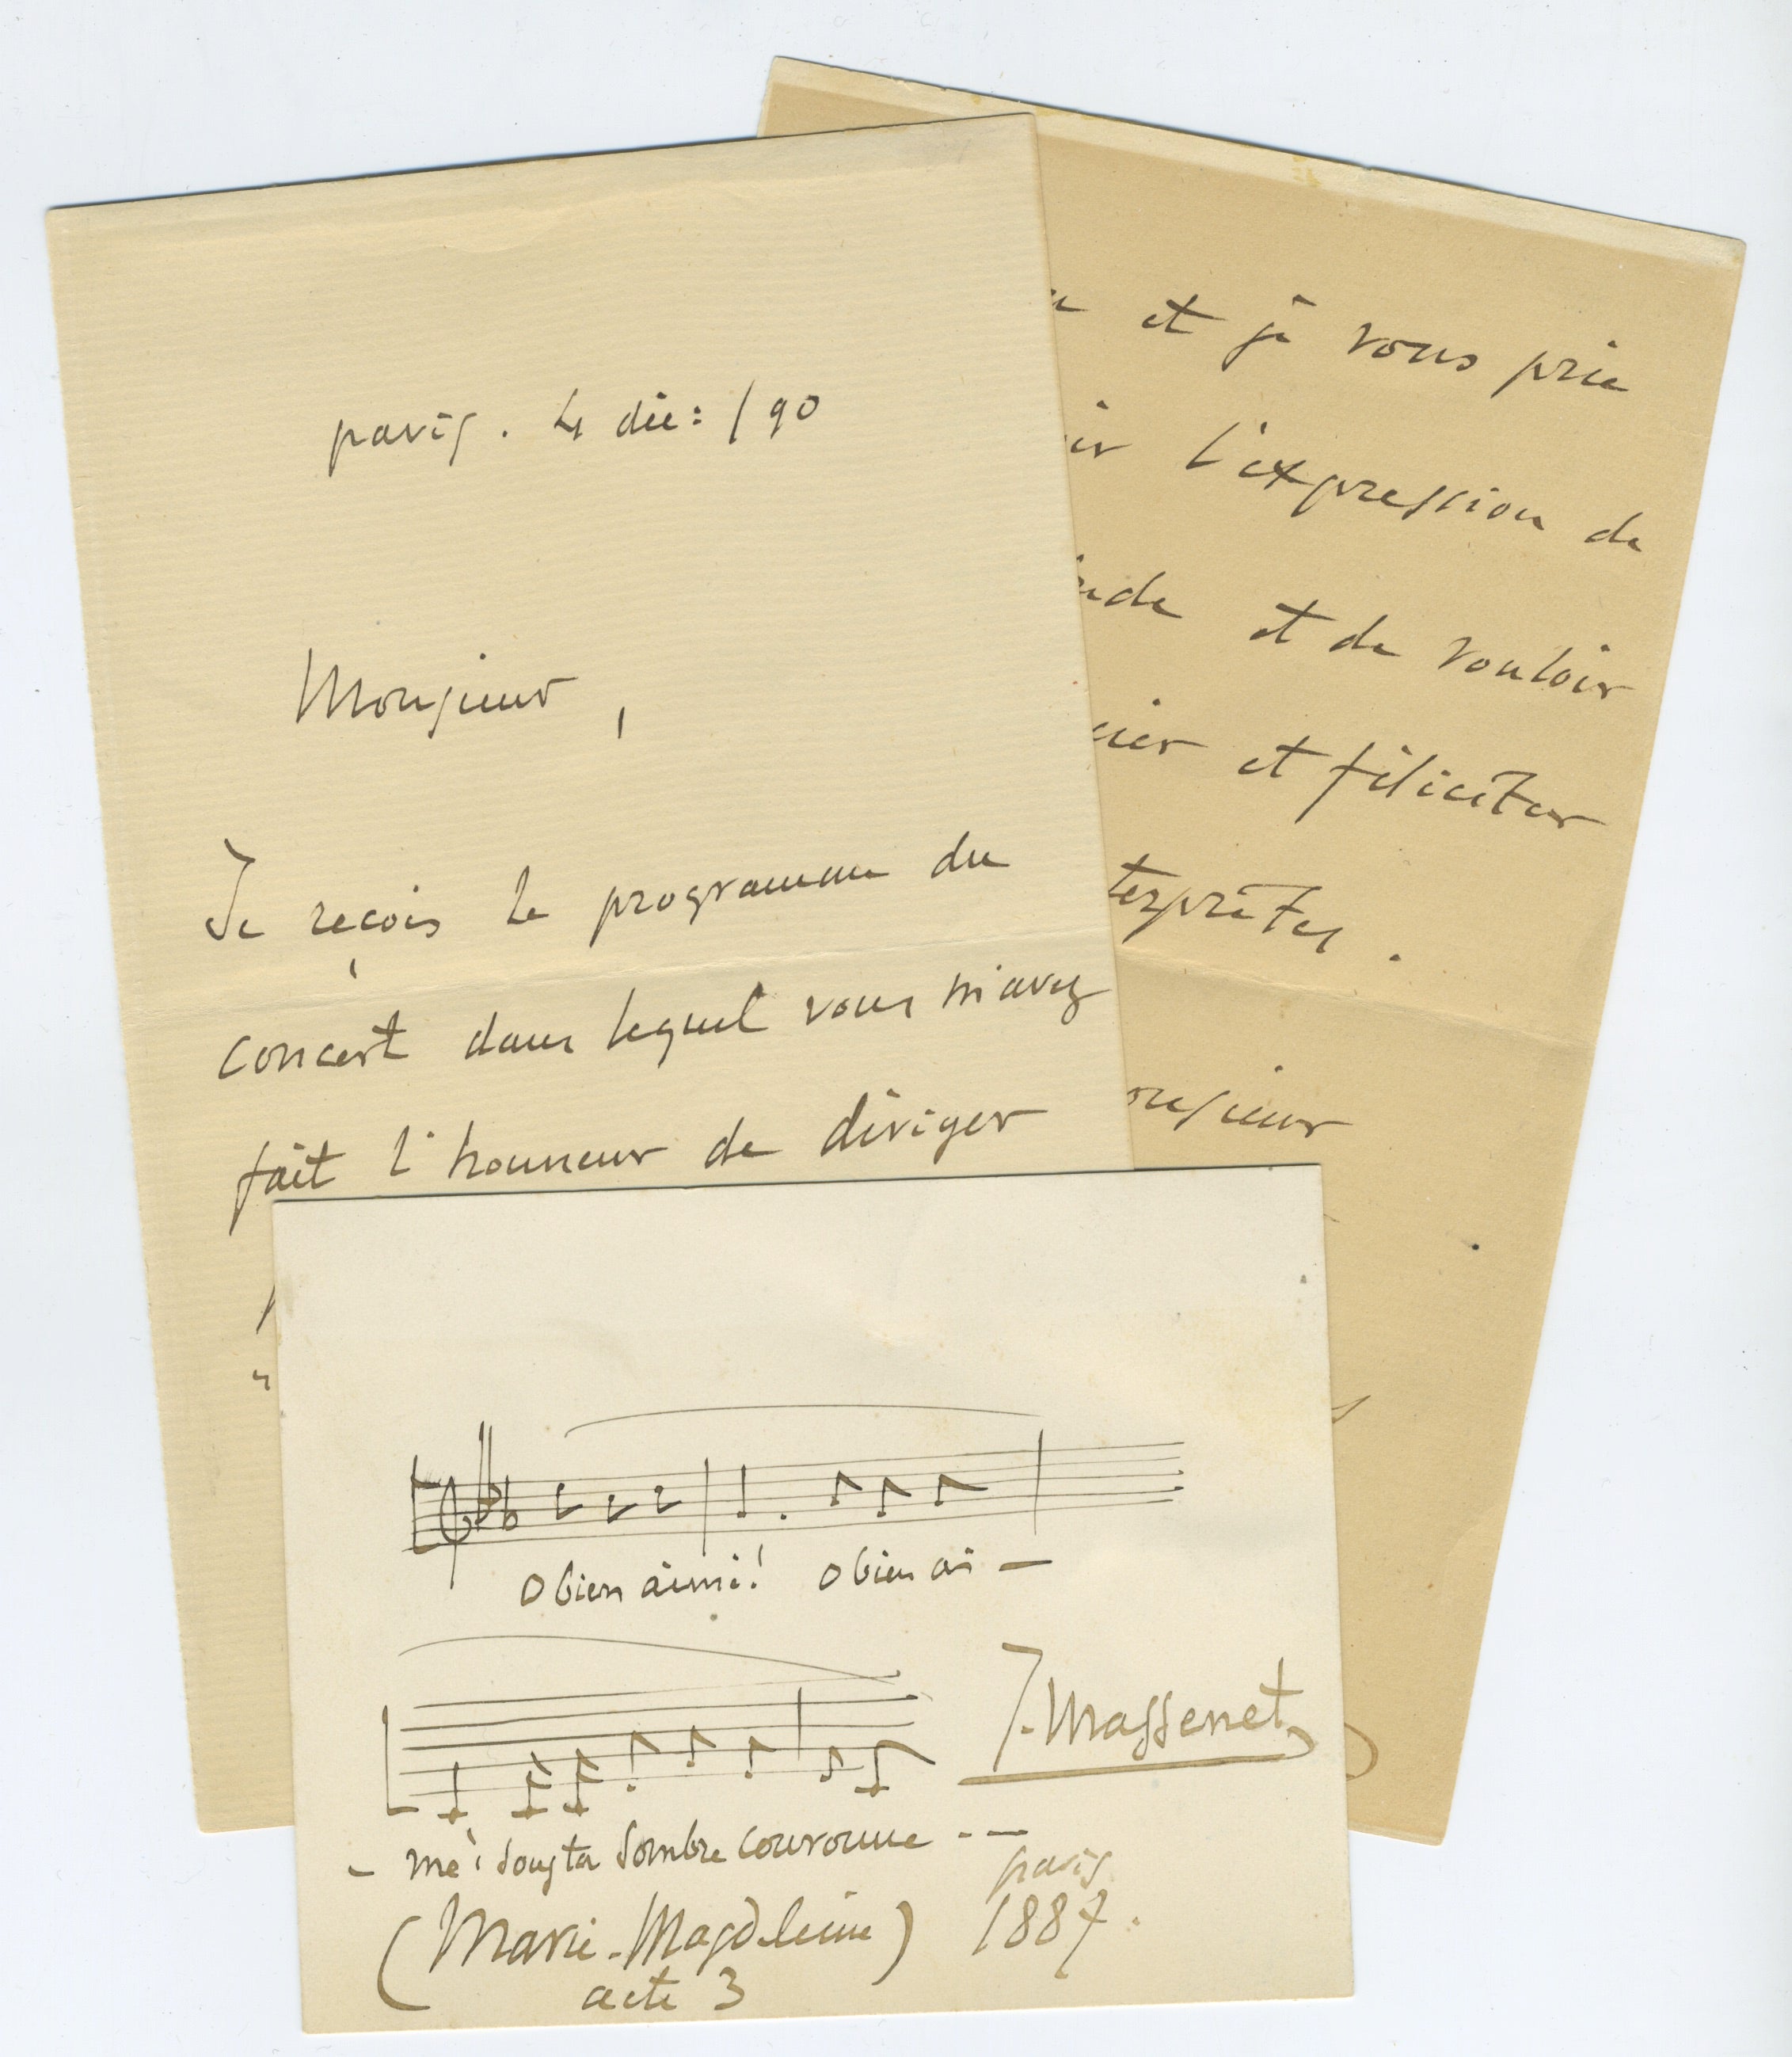 paris. 4 déc: / 90
Monsieur,
Je reçois le programme du
concert dans lequel vous m'avez
fait l'honneur de diriger
et je vous prie
l'expression de
et de vouloir
et féliciter
terprètes.
onsieur
O bien aimé! O bien ai —
– mé! sous ta sombre couronne - —
J. Massenet
(Marie-Magdeleine)
acte 3
paris
1887.